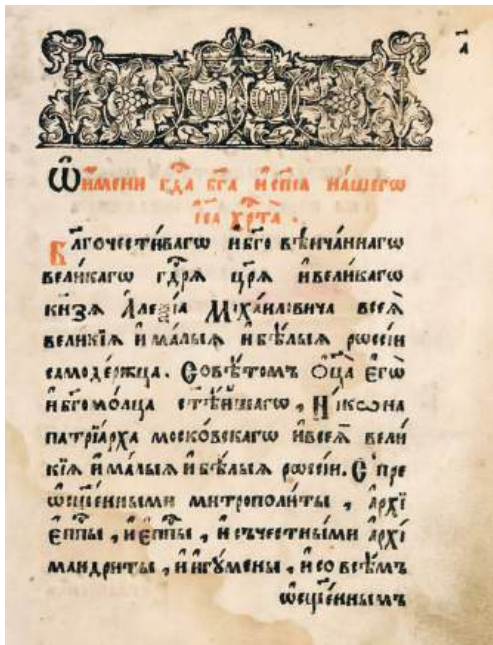 а҃
Ѿ и҆́мени гдⷭ҇а бг҃а и҆ сп҃са на́шегѡ
і҆и҃са хрⷭ҇та̀ .
Бл҃гочести́вагѡ и҆ бг҃о вѣ́нчаннагѡ
вели́кагѡ гдⷭ҇рѧ цр҃ѧ и҆ вели́кагѡ
кн҃зѧ А҆леѯі́а Мїха́иловича всеѧ̀
вели́кїѧ и҆ ма́лыѧ и҆ бѣ́лыѧ рѡссі́и
самоде́ржца . Совѣ́томъ ѻ҆ц҃а̀ є҆гѡ̀
и҆ бг҃омо́лца ст҃ѣ́йшагѡ , Нїкѡна
патрїа́рха моско́вскагѡ и҆ всеѧ̀ вели́
кїѧ и҆ ма́лыѧ и҆ бѣ́лыѧ рѡссі́и . С пре
ѡ҆сщ҃е́нными митрополи́ты , а҆рхї
є҆пⷭ҇пы , и҆ є҆пⷭ҇пы , и҆ съ честны́ми а҆рхї
мандри́ты , и҆ и҆гꙋ́мены , и҆ со всѣ́мъ
ѡ҆сщ҃е́ннымъ